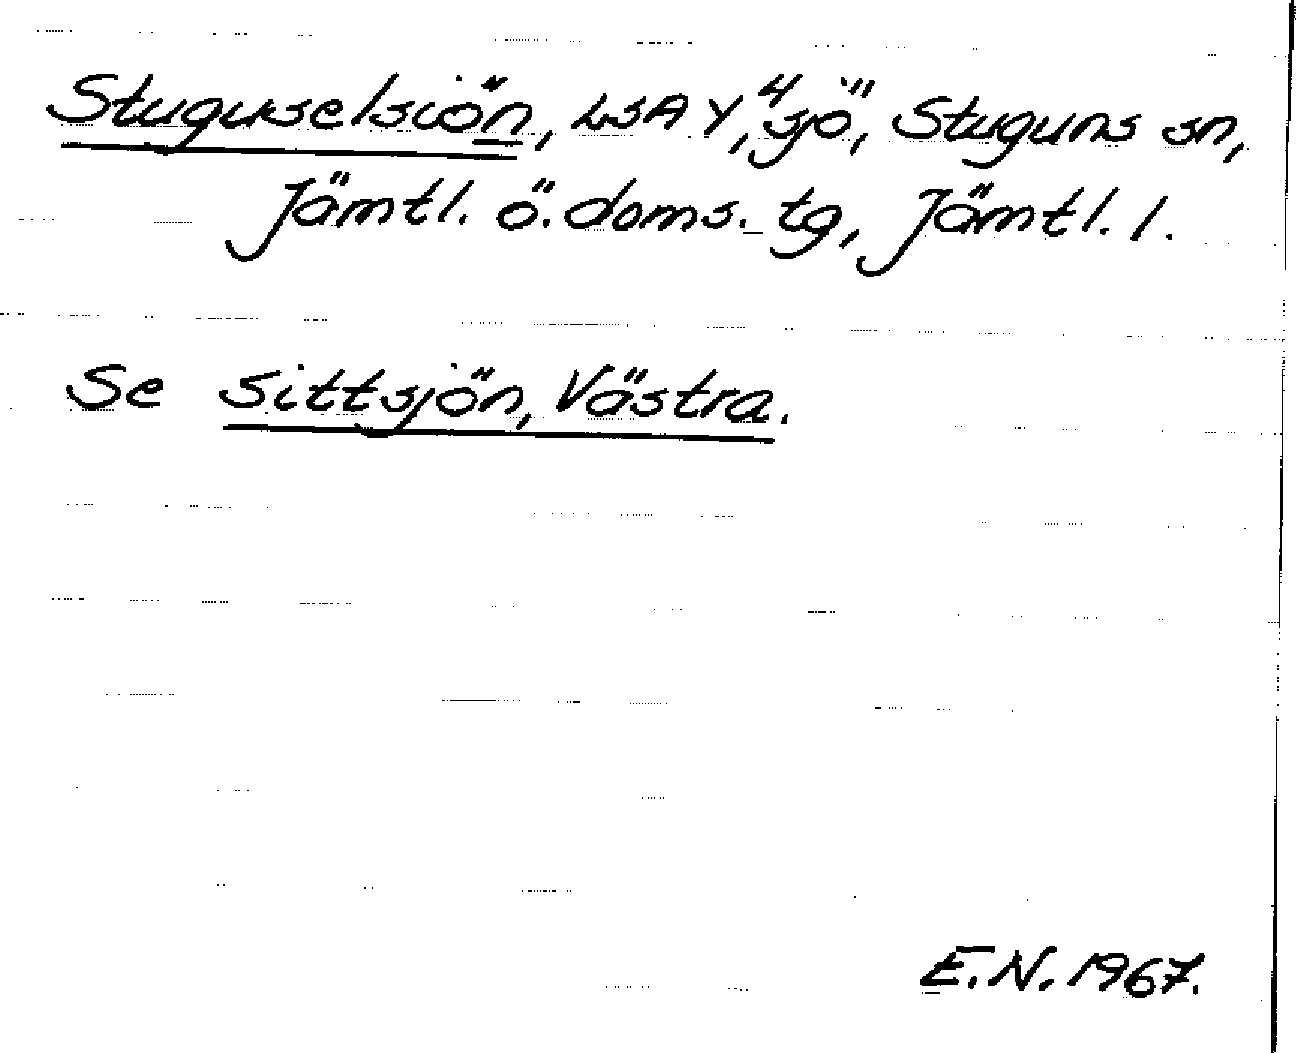 Stuguselsiön, LSA Y, "sjö", Stuguns sn,
Jämtl. ö. doms.-tg, Jämtl. l.
Se Sittsjön, Västra.
E.N. 1967.